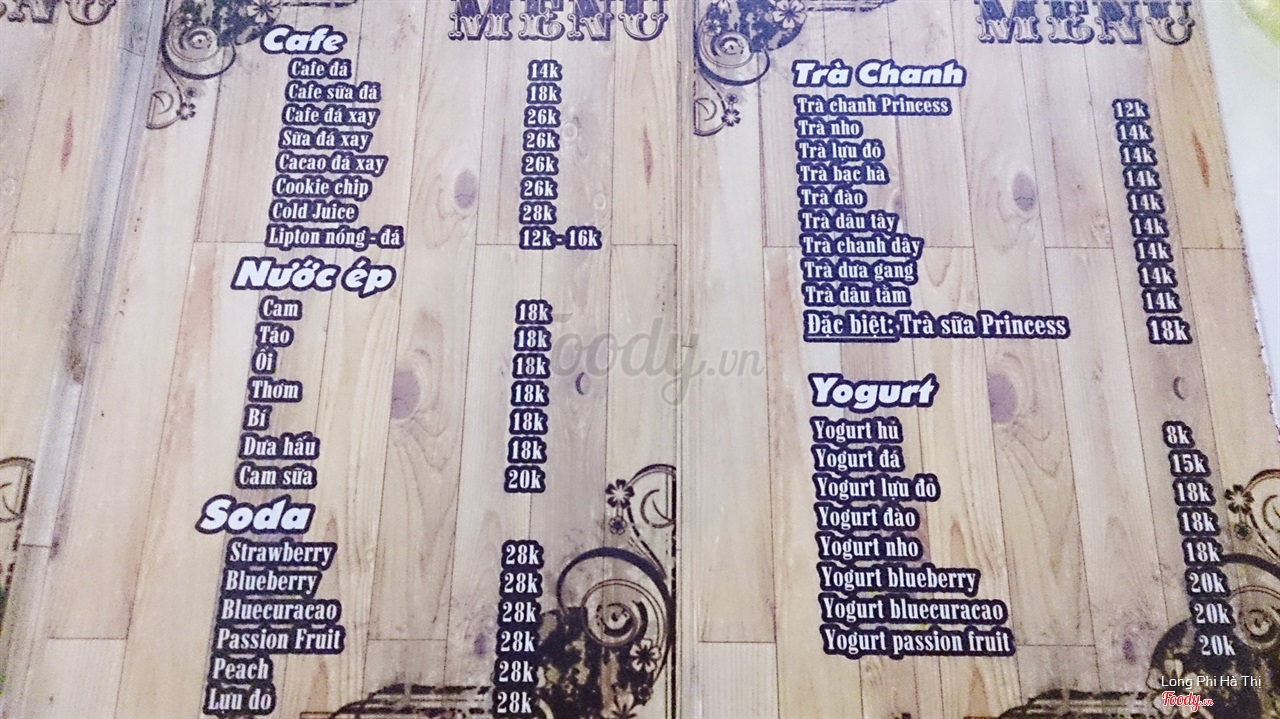 MENU
Cafe
Cafe đá 14k
Cafe sữa đá 18k
Cafe đá xay 26k
Sữa đá xay 26k
Cacao đá xay 26k
Cookie chip 26k
Cold Juice 28k
Lipton nóng - đá 12k - 16k
Nước ép
Cam 18k
Táo 18k
Ổi 18k
Thơm 18k
Bí 18k
Dưa hấu 18k
Cam sữa 20k
Soda
Strawberry 28k
Blueberry 28k
Bluecuracao 28k
Passion Fruit 28k
Peach 28k
Lựu đỏ 28k
MENU
Trà Chanh
Trà chanh Princess 12k
Trà nho 14k
Trà lựu đỏ 14k
Trà bạc hà 14k
Trà đào 14k
Trà dâu tây 14k
Trà chanh dây 14k
Trà dưa gang 14k
Trà dâu tằm 14k
Đặc biệt: Trà sữa Princess 18k
Yogurt
Yogurt hủ 8k
Yogurt đá 15k
Yogurt lựu đỏ 18k
Yogurt đào 18k
Yogurt nho 18k
Yogurt blueberry 20k
Yogurt bluecuracao 20k
Yogurt passion fruit 20k
Foody.vn
Long Phi Hà Thị
Foody.vn